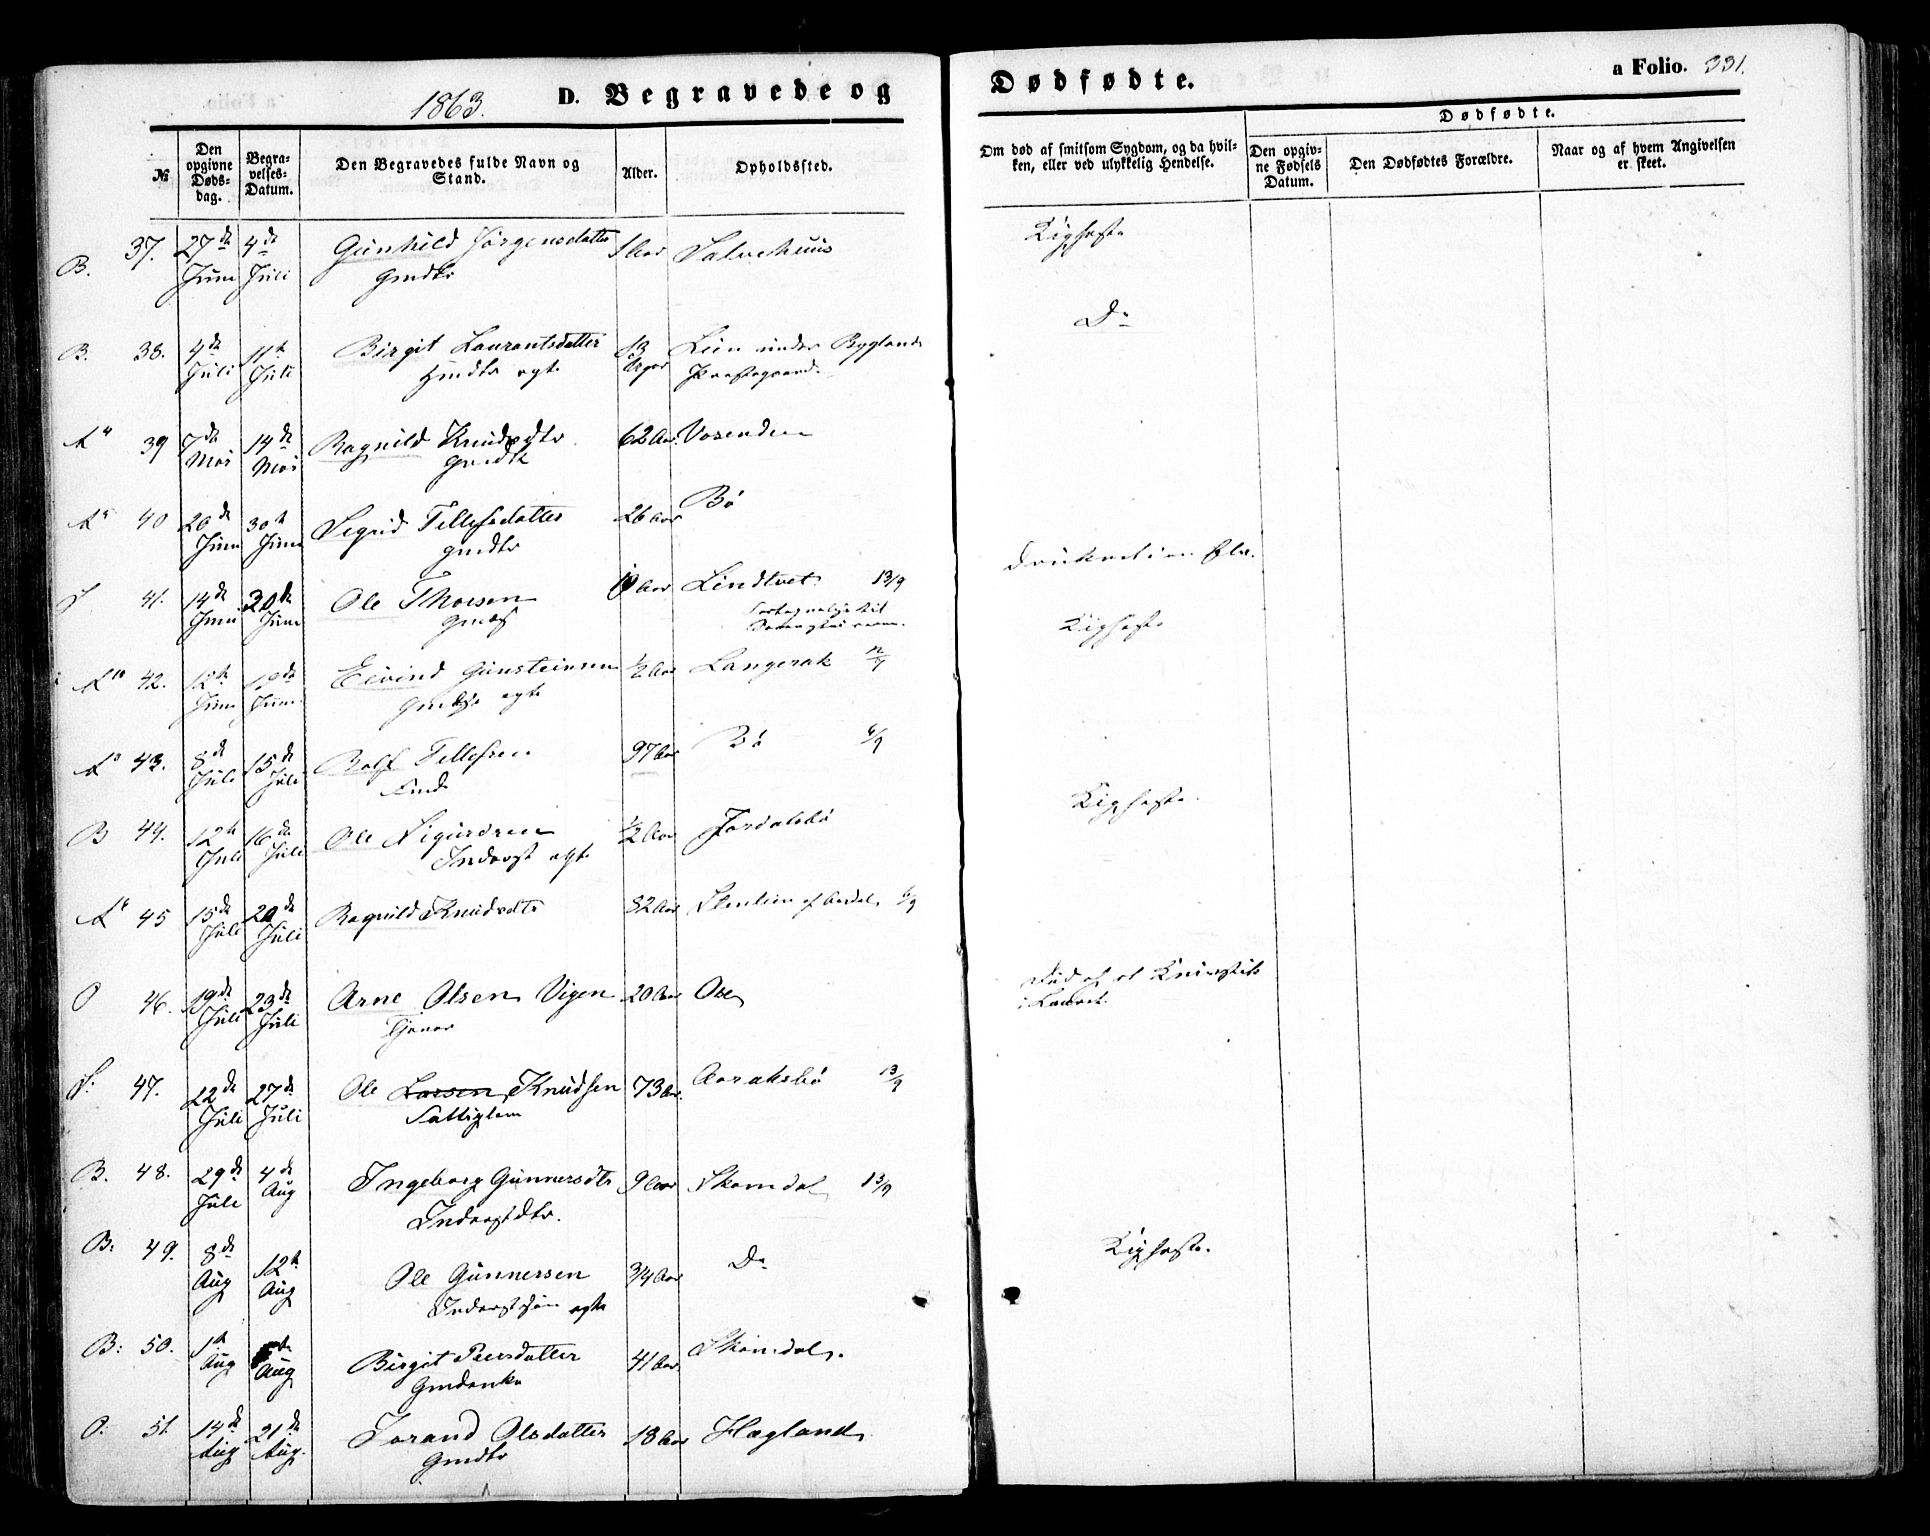 1863.
D. Begravede og Dødfødte.
a Folio. 331.
№
Den opgivne Døds-dag.
Begra-velses-Datum.
Den Begravedes fulde Navn og Stand.
Alder.
Opholdssted.
Om død af smitsom Sygdom, og da hvil-ken, eller ved ulykkelig Hendelse.
Dødfødte.
Den opgiv-ne Fødsels Datum.
Den Dødfødtes Forældre.
Naar og af hvem Angivelsen er skeet.
B. 37. 27de Juni 4de Juli Gunhild Jörgensdatter Gmdtr 1 Aar
Kighoste
B. 38. 4de Juli 11te Juli Birgit Laurantsdatter Hmdtr ægte 13 Uger Lien under Bygland Præstegaard
Do
39 7de Mai 14de Mai Ragnild Knudsdtr 62 Aar Vasenden
40 20de Juni 30te Juni Sigrid Tellefsdatter Gmdtr 26 Aar Bö
41. 14de Juni 20de Juni Ole Thorsen Aar Lindtvet 13/9
Kighoste
42. 12te Juni Juni Eivind Gunsteinsen ægte 1/2 Aar Langerak
43. 8de Juli 15de Juli Rolf Tellefsen 97 Aar Bö
B 44. 12te Juli 16de Juli Ole Sigurdsen Inderst ægte 1/2 Aar Jordalsbö
Kighoste.
45 15de Juli 20de Juli Ragnild Knudsdtr 82 Aar
O 46. 19de Juli 23de Juli Arne Olsen Vigen Tjener 20 Aar Ose
Död af et Knivstik i Laaret.
S: 47. 22de Juli 27de Juli Ole Larsen Knudsen Fattiglem 73 Aar. Aaraksbö 13/9
B. 48. 29de Juli 4de Aug Ingeborg Gunnersdtr Inderstdtr. 9 Aar Skomdal 13/9
B: 49. 8de Aug 12te Aug Ole Gunnersen Inderstsön ægte 3/4 Aar Do
Kighoste.
B: 50. 1te Aug Aug Birgit Peersdatter Gmdenke 41 Aar Skomdal.
O: 51. 14de Aug 21de Aug. Torand Olsdatter Gmdtr 18 Aar Hægland